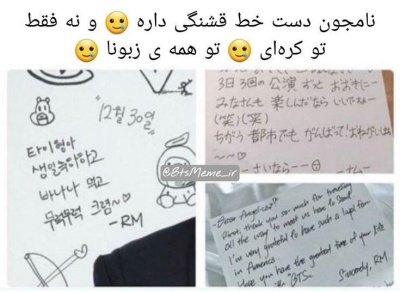 نامجون دست خط قشنگی داره 🥲 و نه فقط
تو کره‌ای 🥲 تو همه ی زبونا 🥲
12월 30일
타이형아
생일축하하고
바나나 먹고
무럭무럭 크렴~♡
-RM
3日3回の公演ずっと
みなさんも楽しんだならいいですねー
(笑)(笑)
ちがう都市でもがんばって!おねがいします
~~♡
ーさいならーー
@BtsMeme_ir
thank you so much for traveling
all the way to meet us here to
I'm very grateful to have such a
in
you have the greatest time of your life
BTS.
Sincerely, RM.